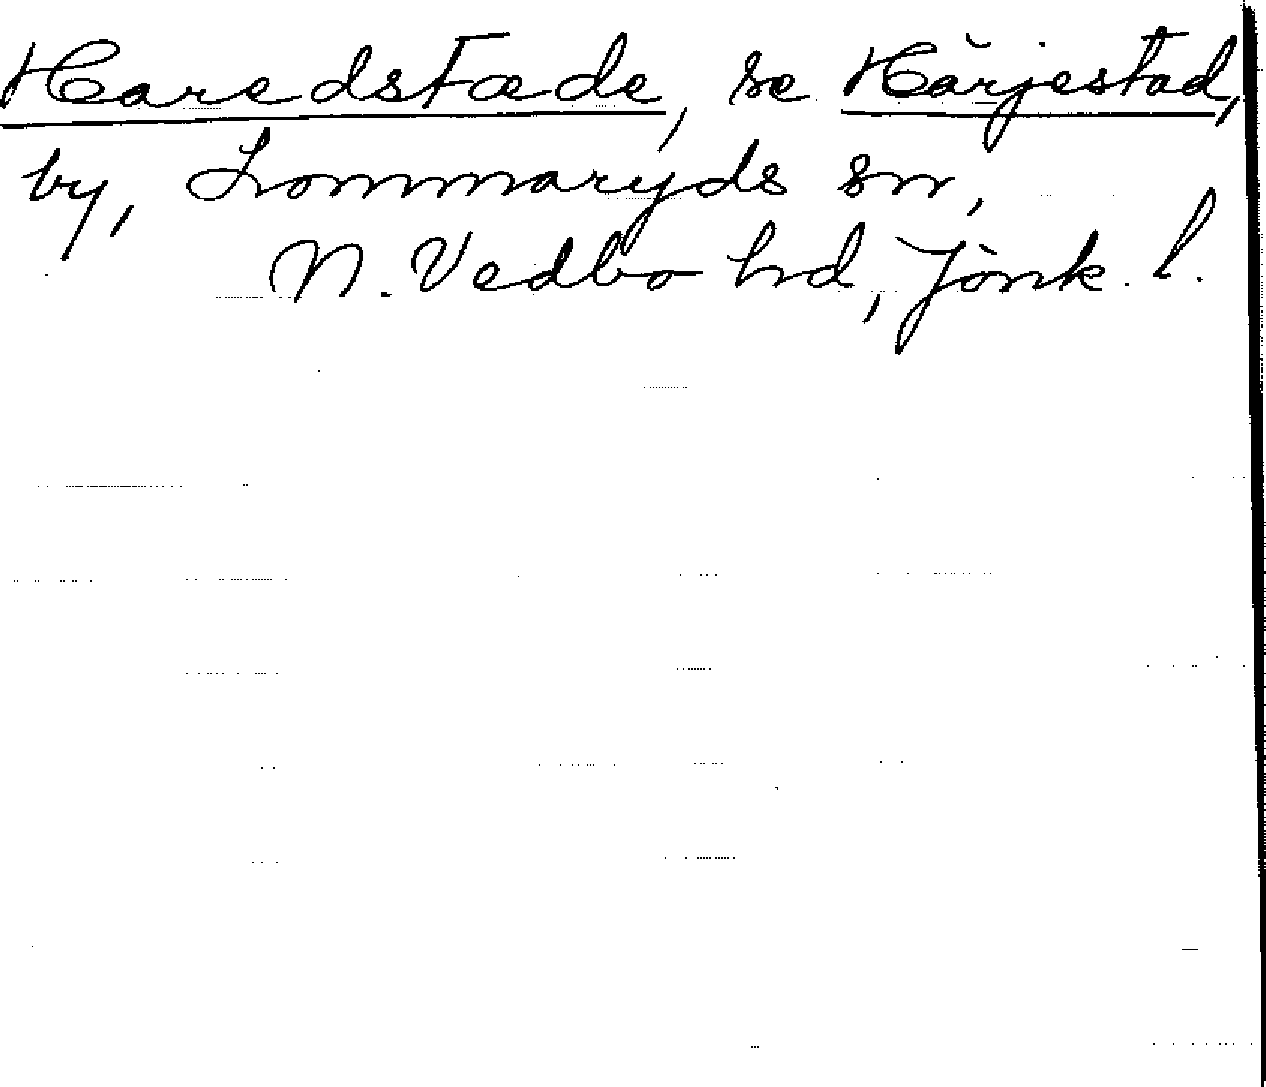 Haredstæde, se Härjestad,
by, Lommaryds sn,
N. Vedbo hd, Jönk. l.